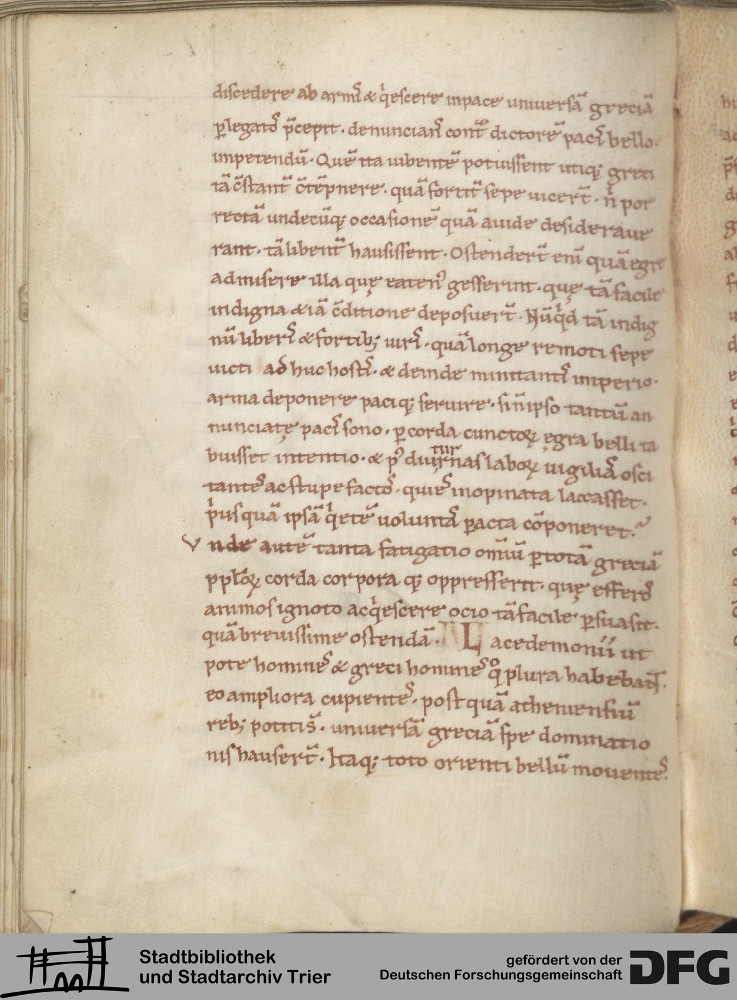 discedere ab armis & q̇escere inpace universā greciā
p̲legatos p̄cepit. denuncians cont̄ dictorē pacis bello.
impetendū. Quē ita iubentē potuissent utiq; greci
tā c̄stant̄ c̄tēpnere. quā fortit̄ sepe vicer̄t. n̄ por
rectā undecūq; occasionē quā avide desiderave
rant. tā libent̄ hausissent. Ostender̄t eni quā egre
admisere illa quę eaten' gesserint. quę tā facile
indigna & iā c̄ditione deposuer̄t. Nūq̇d tā indig
nū liberis & fortib; viris. quā longe remoti sepe
victi adhuc hostis. & deinde minitantis imperio.
arma deponere paciq; servire. sinipso tantū an
nunciatę pacis sono. p̲corda cunctoꝝ ęgra belli ta
buisset intentio. & p' diuturnas laboꝝ vigilias osci
tantes ac stupefactos. quies inopinata laxasset.
p̓us quā ipsā q̇etē voluntas p̲acta cōponeret.
Unde autē tanta fatigatio omiū p̲totā greciā
pploꝝ corda corpora q; oppresserit. quę efferos
animos ignoto acq̇escere ocio tā facile p̲suasit.
quā brevissime ostendā. Lacedemonii ut
pote homines & greci homines q̊ plura habebant.
eo ampliora cupientes. post quā atheniensiū
reb; potiti s̄. universā greciā spe dominatio
nis hauser̄t. Itaq; toto orienti bellū moventes.
Stadtbibliothek
und Stadtarchiv Trier
gefördert von der
Deutschen Forschungsgemeinschaft
DFG